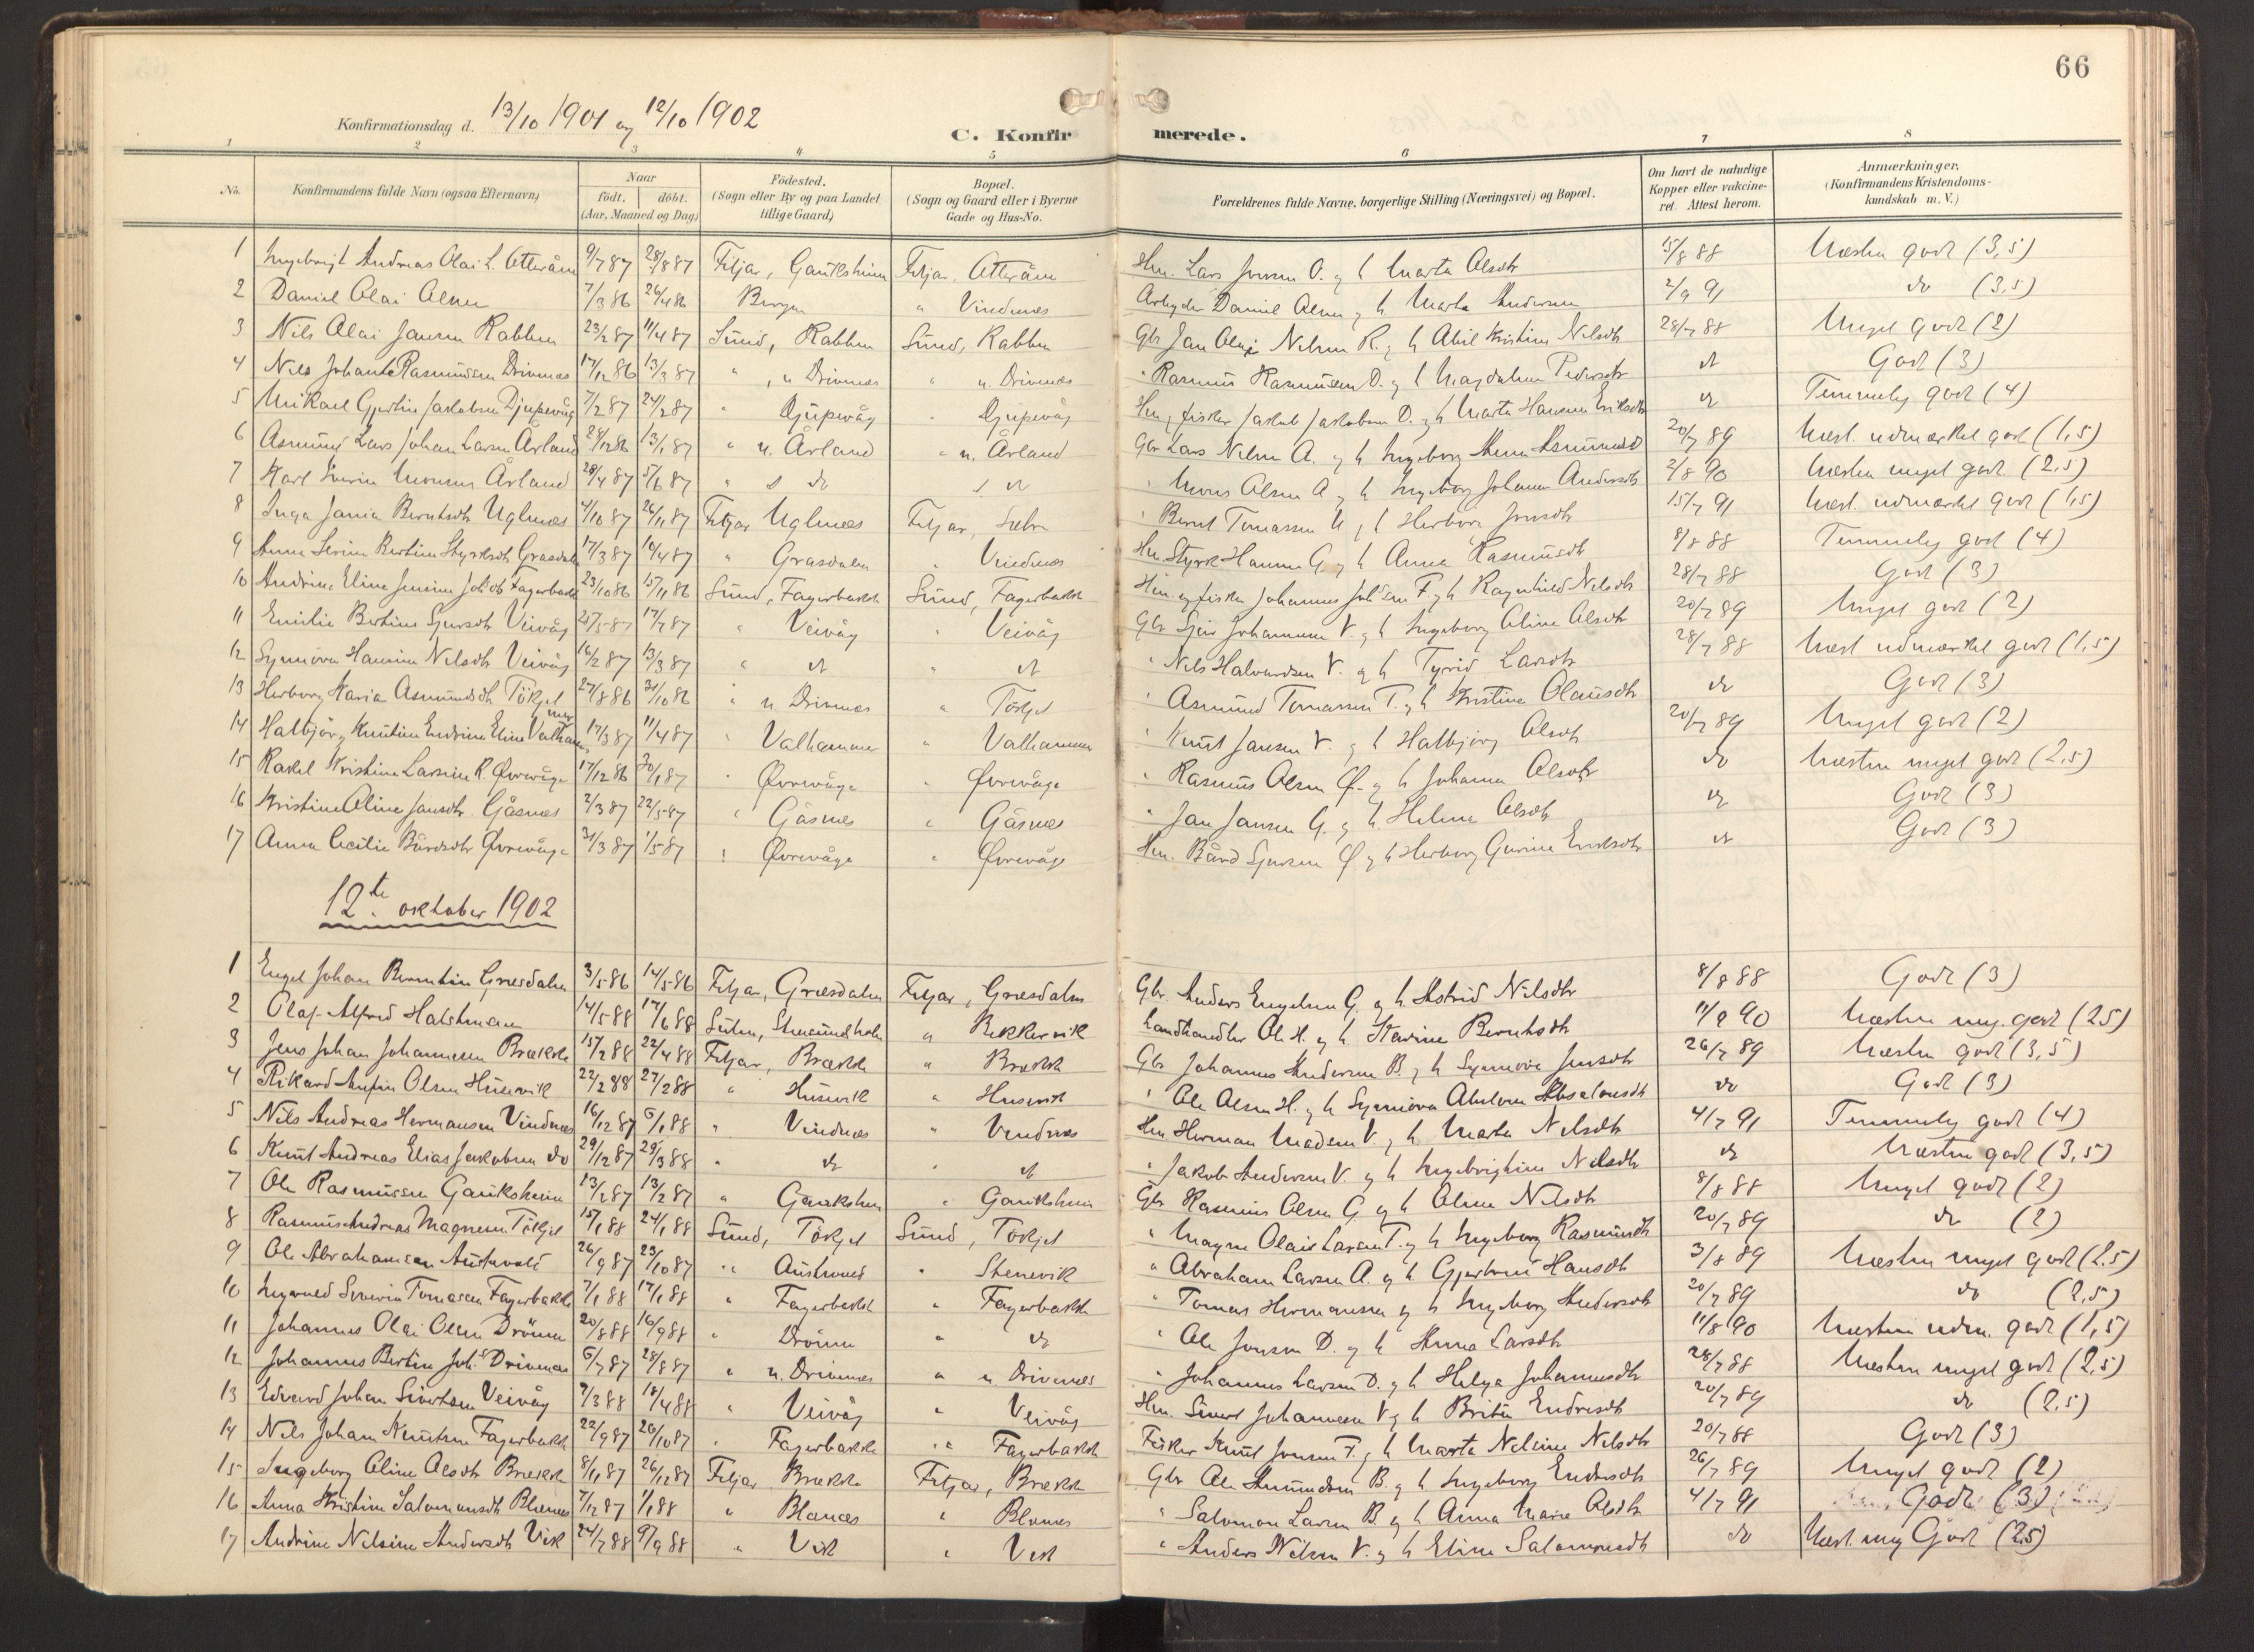 66
Konfirmationsdag d. 13/10 1901 og 12/10 1902
C. Konfirmerede.
1 2 3 4 5 6 7 8
No. Konfirmandens fulde Navn (ogsaa Efternavn) Naar födt. döbt. (Aar, Maaned og Dag) Födested. (Sogn eller By og paa Landet tillige Gaard) Bopæl. (Sogn og Gaard eller i Byerne Gade og Hus-No. Forældrenes fulde Navne, borgerlige Stilling (Næringsvei) og Bopæl. Om havt de naturlige Kopper eller vakcineret. Attest herom. Anmærkninger. (Konfirmandens Kristendomskundskab m. V.)
1 Ingebrigt Andreas Olai L. Otteråen 9/7 87 28/8 87 Fitjar, Gauksheim Fitjar, Otteråen Hm. Lars Jonsen O. og h Marta Olsdtr 15/8 88 Næsten godt (3,5)
2 Daniel Olai Olsen 7/3 86 26/4 86 Bergen " Vindnes Arbeyder Daniel Olsen og h. Marta Andersen 2/9 91 do (3,5)
3 Nils Olai Jansen Rabben 23/2 87 11/4 87 Sund, Rabben Sund, Rabben Gbr Jan Olai Nilsen R. og h Abil Kristine Nilsdtr 28/7 88 Meget godt (2)
4 Nils Johan Rasmussen Drivenes 17/12 86 13/3 87 " , n Drivenes " n. Drivenes " Rasmus Rasmussen D. og h Magdalena Pedersdtr do Godt (3)
5 Mikael Gjertin Jakobsen Djupevåg 7/2 87 24/2 87 " Djupevåg " Djupevåg Hm og fisker Jakob Jakobsen D. og h Marta Hansine Eriksdtr do Temmelig godt (4)
6 Asmund Lars Johan Larsen Årland 28/12 86 13/1 87 " n. Årland " n. Årland Gbr Lars Nilsen A. og h Ingeborg Anna Asmundsd 20/7 89 Næst. udmærket godt (1,5)
7 Karl Severin Monsen Årland 28/4 87 5/6 87 " s do s do " Mons Olsen A og h Ingeborg Johanna Andersdtr 2/8 90 Næsten meget godt (2,5)
8 Inga Jania Berntsdtr Uglenes 4/10 87 26/11 87 Fitjar Uglenes Fitjar, Sæbø " Bernt Tomassen U og h Herborg Jonsdtr 15/7 91 Næst. udmærket godt (1,5)
9 Anna Serina Bertine Styrksdtr Grasdalen 17/3 87 10/4 87 " Grasdalen " Vindnes Hm. Styrk Hansen G og h Anna Rasmusdtr 8/8 88 Temmelig godt (4)
10 Andrine Eline Jensine Johsdtr Fagerbakk 23/10 86 15/11 86 Sund, Fagerbakk Sund, Fagerbakk Hm og fisker Johannes Johsen F. og h Ragnhild Nilsdtr 28/7 88 Godt (3)
11 Emilie Bertine Sjursdtr Veivåg 25/5 87 17/7 87 " Veivåg " Veivåg Gbr Sjur Johannesen V. og h Ingeborg Oline Olsdtr 20/7 89 Meget godt (2)
12 Synnøva Hansine Nilsdtr Veivåg 16/2 87 13/3 87 " do " do " Nils Halvardsen V. og h Tyrid Larsdtr 28/7 88 Næst udmærket godt (1,5)
13 Herborg Karia Asmundsdtr Tökjel 27/8 86 31/10 86 " n. Drivenes " Tökjel " Asmund Tomassen T. og h Kristine Olausdtr do Godt (3)
14 Halbjørg Knutine Endrine Eline Valhammer 17/3 87 11/4 87 " Valhammer " Valhammer " Knut Jansen V. og h Halbjørg Olsdtr 20/7 89 Meget godt (2)
15 Rakel Kristine Larsine R. Øvrevåge 17/12 86 30/1 87 " Øvrevåge " Øvrevåge " Rasmus Olsen Ø. og h Johanna Olsdtr do Næsten meget godt (2,5)
16 Kristine Oline Jansdtr Gåsnes 2/3 87 22/5 87 " Gåsnes " Gåsnes " Jan Jansen G. og h Helene Olsdtr do Godt (3)
17 Anna Cecilie Bårdsdtr Øvrevåge 31/3 87 1/5 87 " Øvrevåge " Øvrevåge Hm. Bård Sjursen Ø og h Herborg Gurine Eriksdtr do Godt (3)
12te oktober 1902
1 Engel Johan Berntin Græsdalen 3/5 86 14/5 86 Fitjar, Græsdalen Fitjar, Græsdalen Gbr. Anders Engelsen G. og h. Astrid Nilsdtr 8/8 88 Godt (3)
2 Olaf Alfred Halstensen 14/5 88 17/6 88 Bekkervik Landhandler Ole H. og h. Berntsdtr 11/9 90 Næsten meg. godt (2,5)
3 Jens Johan Johannesen Brække 15/2 88 22/4 88 Fitjar, Brække " Brække Gbr Johannes Andersen B. og h Synnøva Jensdtr 26/7 89 Næsten godt (3,5)
4 Rikard Olsen Husevik 22/2 88 27/2 88 " Husevik " Husevik " Ole Olsen H. og h Synnöva Absalonsdtr do Godt (3)
5 Nils Andreas Hermansen Vindnes 16/12 87 6/1 88 " Vindnes " Vindnes Hm Herman Madsen V. og h. Marta Nilsdtr 4/7 91 Temmelig godt (4)
6 Knut Andreas Elias Jakobsen do 29/12 87 25/3 88 " do " do " Jakob Andersen V. og h Ingebrigtine Nilsdtr do Næsten godt (3,5)
7 Ole Rasmussen Gauksheim 13/1 87 13/2 87 " Gauksheim " Gauksheim Gbr Rasmus Olsen G og h Oline Nilsdtr 8/8 88 Meget godt (2)
8 Rasmus Andreas Magnesen Tökjel 15/1 88 24/1 88 Sund, Tökjel Sund, Tökjel " Magne Olai Larsen T. og h Ingeborg Rasmusdtr 20/7 89 do (2)
9 Ole Abrahamsen Austevold 26/9 87 23/10 87 " Austevold " Stenevik " Abraham Larsen A. og h. Gjertrud Hansdtr 3/8 89 Næsten meget godt (2,5)
10 Ingvald Severin Tomassen Fagerbakk 7/1 88 17/1 88 " Fagerbakk " Fagerbakk " Tomas Hermansen og h Ingeborg Andersdtr 20/7 89 do (2,5)
11 Johannes Olai Olsen Drönen 20/8 88 16/9 88 " Drönen " do " Ole Jonsen D. og h Anna Larsdtr 11/8 90 Næsten udm. godt (1,5)
12 Johannes Bertin Johs Drivenes 6/7 87 28/8 87 " n. Drivenes " n. Drivenes " Johannes Larsen D. og h Helga Johannesdtr 28/7 88 Næsten meget godt (2,5)
13 Edvard Johan Sivertsen Veivåg 7/3 88 18/4 88 " Veivåg " Veivåg Hm. Sivert Johannesen V og h Brita Endresdtr 20/7 89 do (2,5)
14 Nils Johan Knutsen Fagerbakk 22/9 87 20/10 87 " Fagerbakk " Fagerbakk Fisker Knut Jonsen F. og h Marta Nelsine Nilsdtr 20/7 88 Godt (3)
15 Ingeborg Oline Olsdtr Brække 8/11 87 26/12 87 Fitjar Brække Fitjar, Brække Gbr Ole Amundsen B. og h Ingeborg Endresdtr 26/7 89 Meget godt (2)
16 Anna Kristine Salomonsdtr Blænes 7/12 87 1/1 88 " Blænes " Blænes " Salomon Larsen B. og h Anna Marie Olsdtr 4/7 91 Godt (3)
17 Andrine Nilsine Andersdtr Vik 24/7 88 9/9 88 " Vik " Vik " Anders Nilsen V. og h Eline Salomonsdt do Næst. meg Godt (2,5)